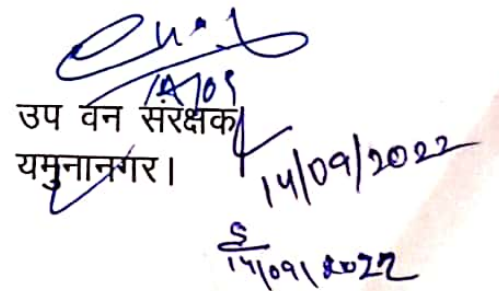 उप वन संरक्षक
यमुनानगर।
14/09/2022
14/09/2022